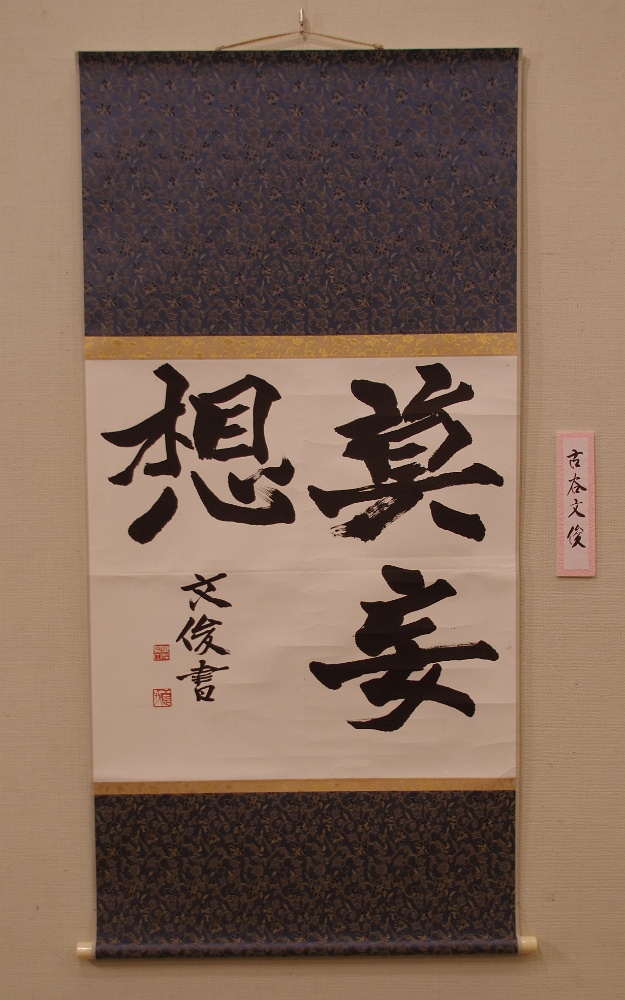 莫妄
想
文俊書
古谷文俊